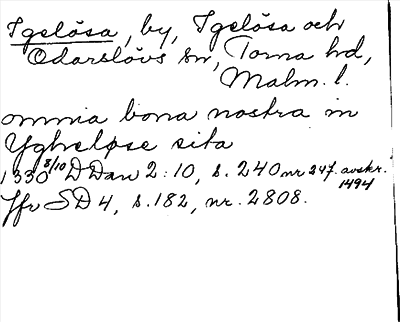 Igelösa, by, Igelösa och
Odarslövs sn, Torna hd,
Malm. l.
omnia bona nostra in
Ygheløse sita
1330 8/10 DDan 2:10, s. 240 nr 247. avskr. 1494
Jfr SD 4, s. 182, nr. 2808.